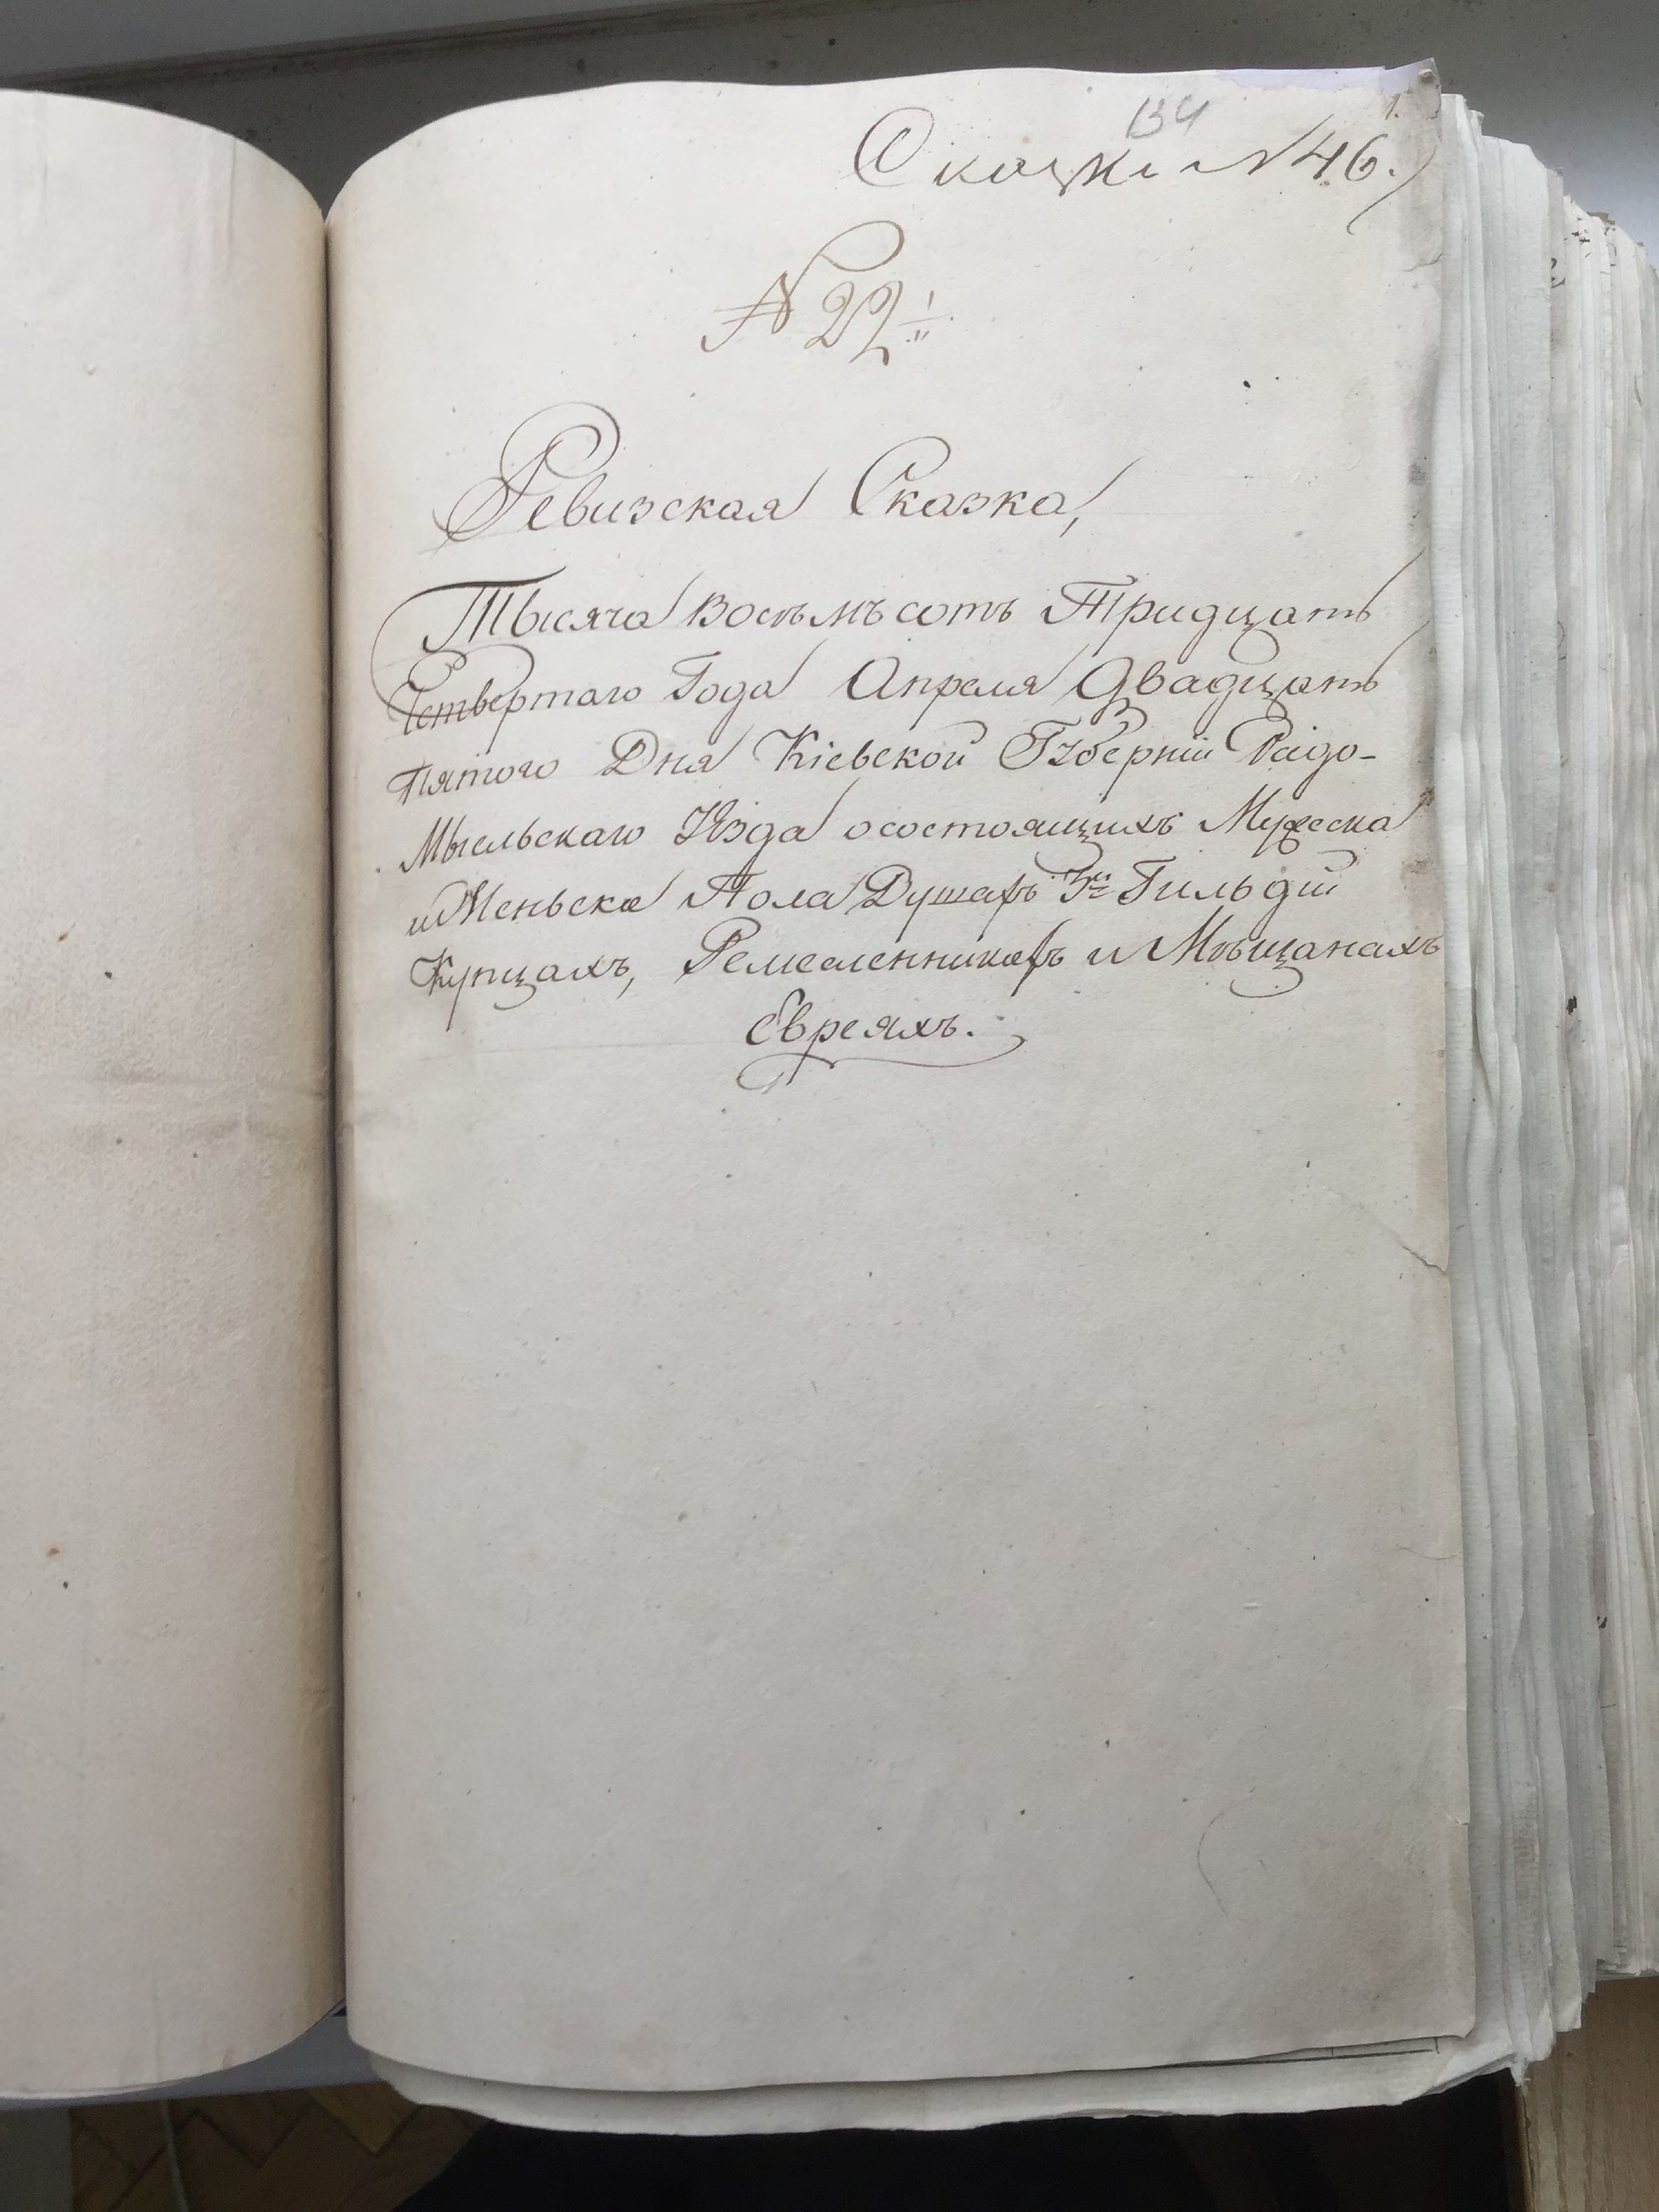 134
1.
Сказки №46.
№ 22
Ревизская Сказка,
Тысяча Восъмъсотъ Тридцать
Четвертаго Года Апреля Двадцать
Пятого Дня Кіевской Губерніи Радо-
мысльскаго Уѣзда о состоящихъ Мужеска
и Женьска Пола Душахъ 3й Гильдіи
Купцахъ, Ремесленникахъ и Мѣщанахъ
Евреяхъ.